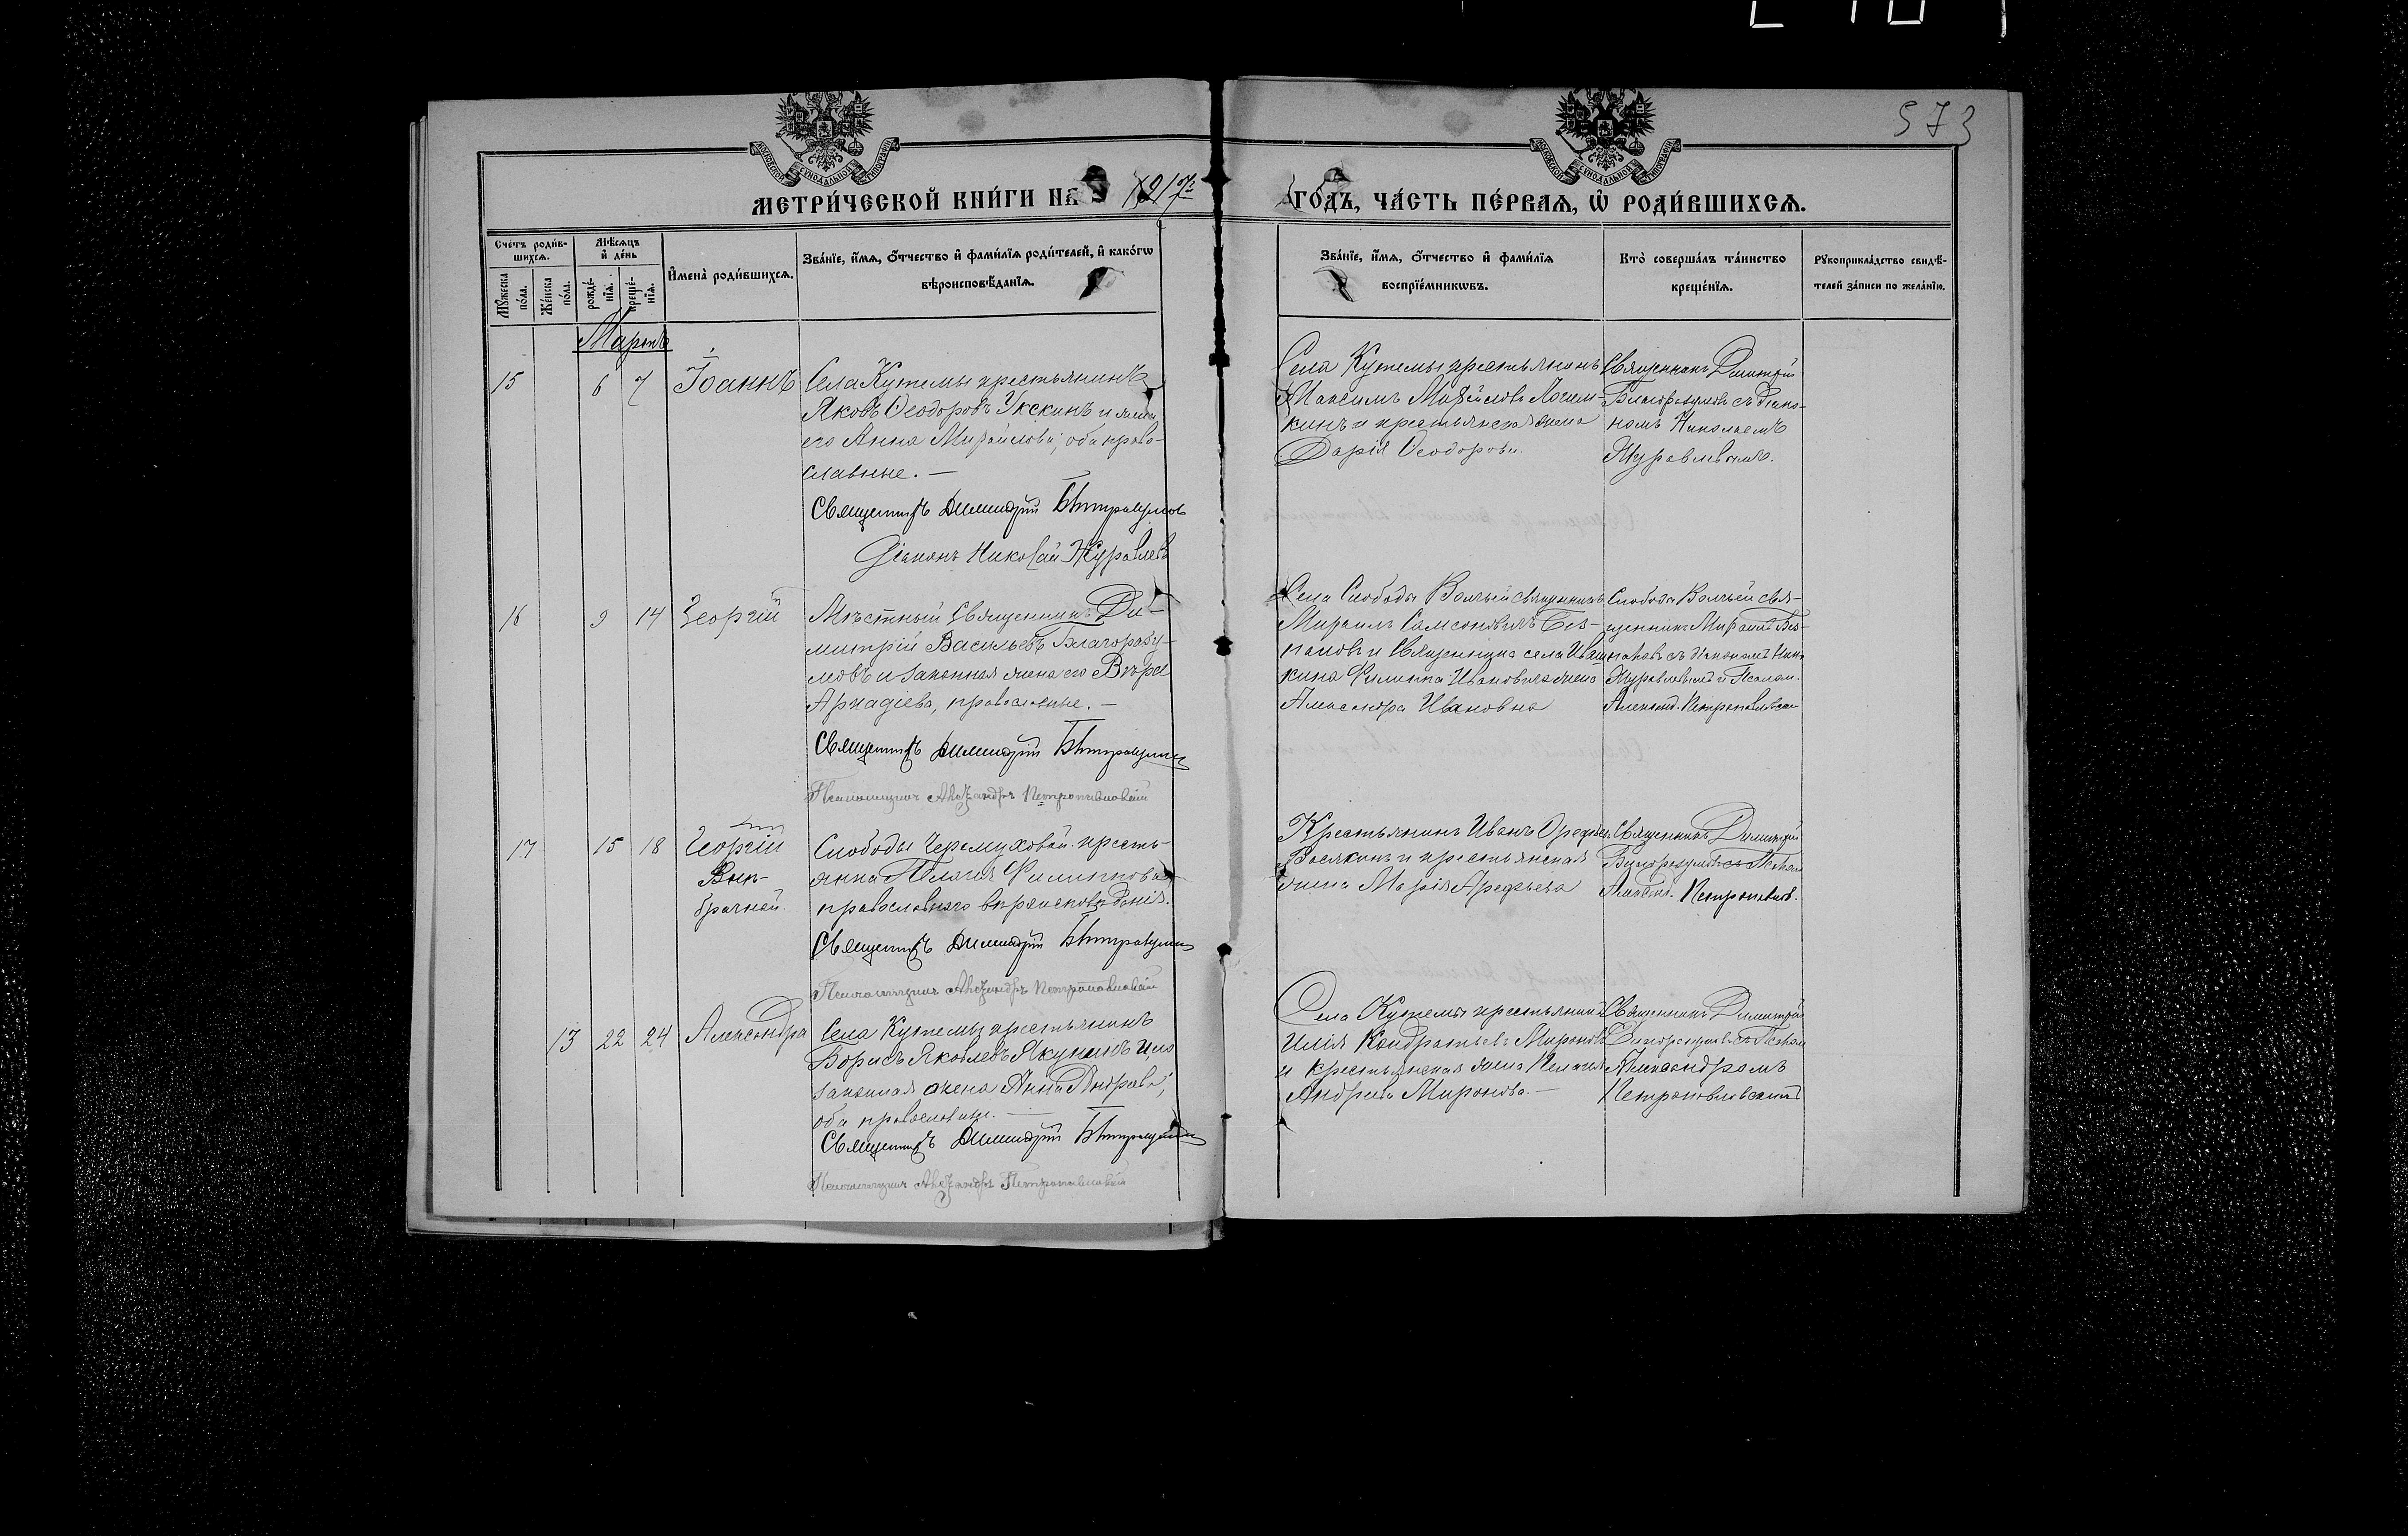 573
МЕТРИ́ЧЕСКОЙ КНИ́ГИ НА 1917 г.
ГО́ДЪ, ЧА́СТЬ ПЕ́РВАѦ, Ѽ РОДИ́ВШИХСѦ.
Сче́тъ роди́в-
шихсѧ.
Мѣ́сѧцъ
и҆ де́нь
Мꙋ́жеска
по́ла.
Же́нска
по́ла.
рожде́-
нїѧ.
креще́-
нїѧ.
И҆мена̀ роди́вшихсѧ.
Зва́нїе, и҆́мѧ, ѻ҆́тчество и҆ фами́лїѧ роди́телей, и҆ како́гѡ
вѣроисповѣ́данїѧ.
Зва́нїе, и҆́мѧ, ѻ҆́тчество и҆ фами́лїѧ
воспрїе́мникѡвъ.
Кто̀ соверша́лъ та́инство
креще́нїѧ.
Рꙋкоприкла́дство свидѣ́-
телей за́писи по жела́нїю.
Мартъ
15 6 7 Іоаннъ
Села Кутемы крестьянинъ
Яковъ Ѳеодоровъ Укскинъ и жена
его Анна Михайлова, оба право-
славные. —
Священникъ Димитрій Благоразумов
Діаконъ Николай Журавлевъ
Села Кутемы крестьянинъ
Максимъ Михайловъ
кинъ и крестьянская жена
Дарія Ѳеодорова.
Священникъ Димитрій
Благоразумовъ съ діако-
номъ Николаемъ
Журавлевымъ.
16 9 14 Георгій
Мѣстный Священникъ Ди-
митрій Васильевъ Благоразу-
мовъ и законная жена его Вѣра
Аркадіева, православные. —
Священникъ Димитрій Благоразумов
Псаломщикъ Александръ Петропавловскій
Села Слободы Волчьей священникъ
Михаилъ Самсоновичъ Без-
паловъ и Священника села Иваш-
кина Филиппа Ивановича жена
Александра Ивановна
Слободы Волчьей свя-
щенникъ Михаилъ Без-
паловъ съ діакономъ Ник.
Журавлевымъ и Псалом.
Александ. Петропавловским
17 15 18 Георгій
Внѣ-
брачный.
Слободы Черемуховой кресть-
янка Пелагія Филиппова
православнаго вѣроисповѣданія.
Священникъ Димитрій Благоразумов
Псаломщикъ Александръ Петропавловскій
Крестьянинъ Иванъ
и крестьянская
жена Марія Арефьева
Священникъ Димитрій
Благоразумовъ съ Псалом
Александ. Петропавлов.
13 22 24 Александра
Села Кутемы крестьянинъ
Борисъ Яковлевъ Якунинъ и его
законная жена Анна Андреева,
оба православные. —
Священникъ Димитрій Благоразумов
Псаломщикъ Александръ Петропавловскій
Села Кутемы крестьянинъ
Илія Кондратьевъ Мироновъ
и крестьянская жена Пелагія
Андреева Миронова. —
Священникъ Димитрій
Благоразумовъ съ Псалом
Александромъ
Петропавловскимъ